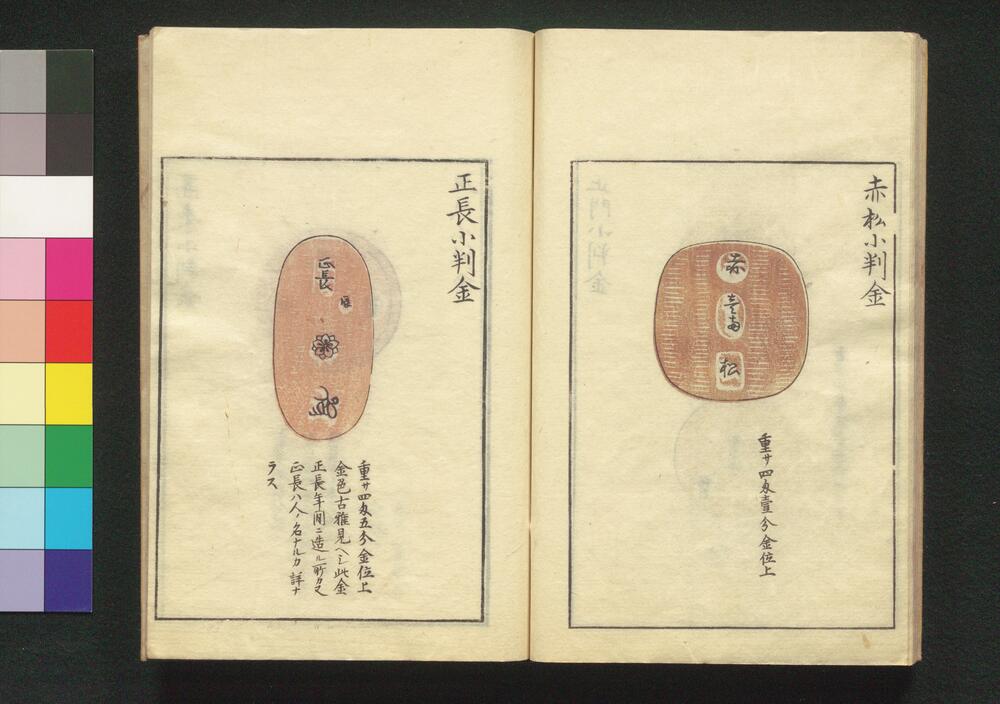 赤松小判金
赤
壹両
松
重サ四匁壹分金位上
正長小判金
正長
重サ四匁五分金位上
金色古雅見ヘシ此金
正長年間ニ造ル所カ又
正長ハ人ノ名ナルカ詳ナ
ラス